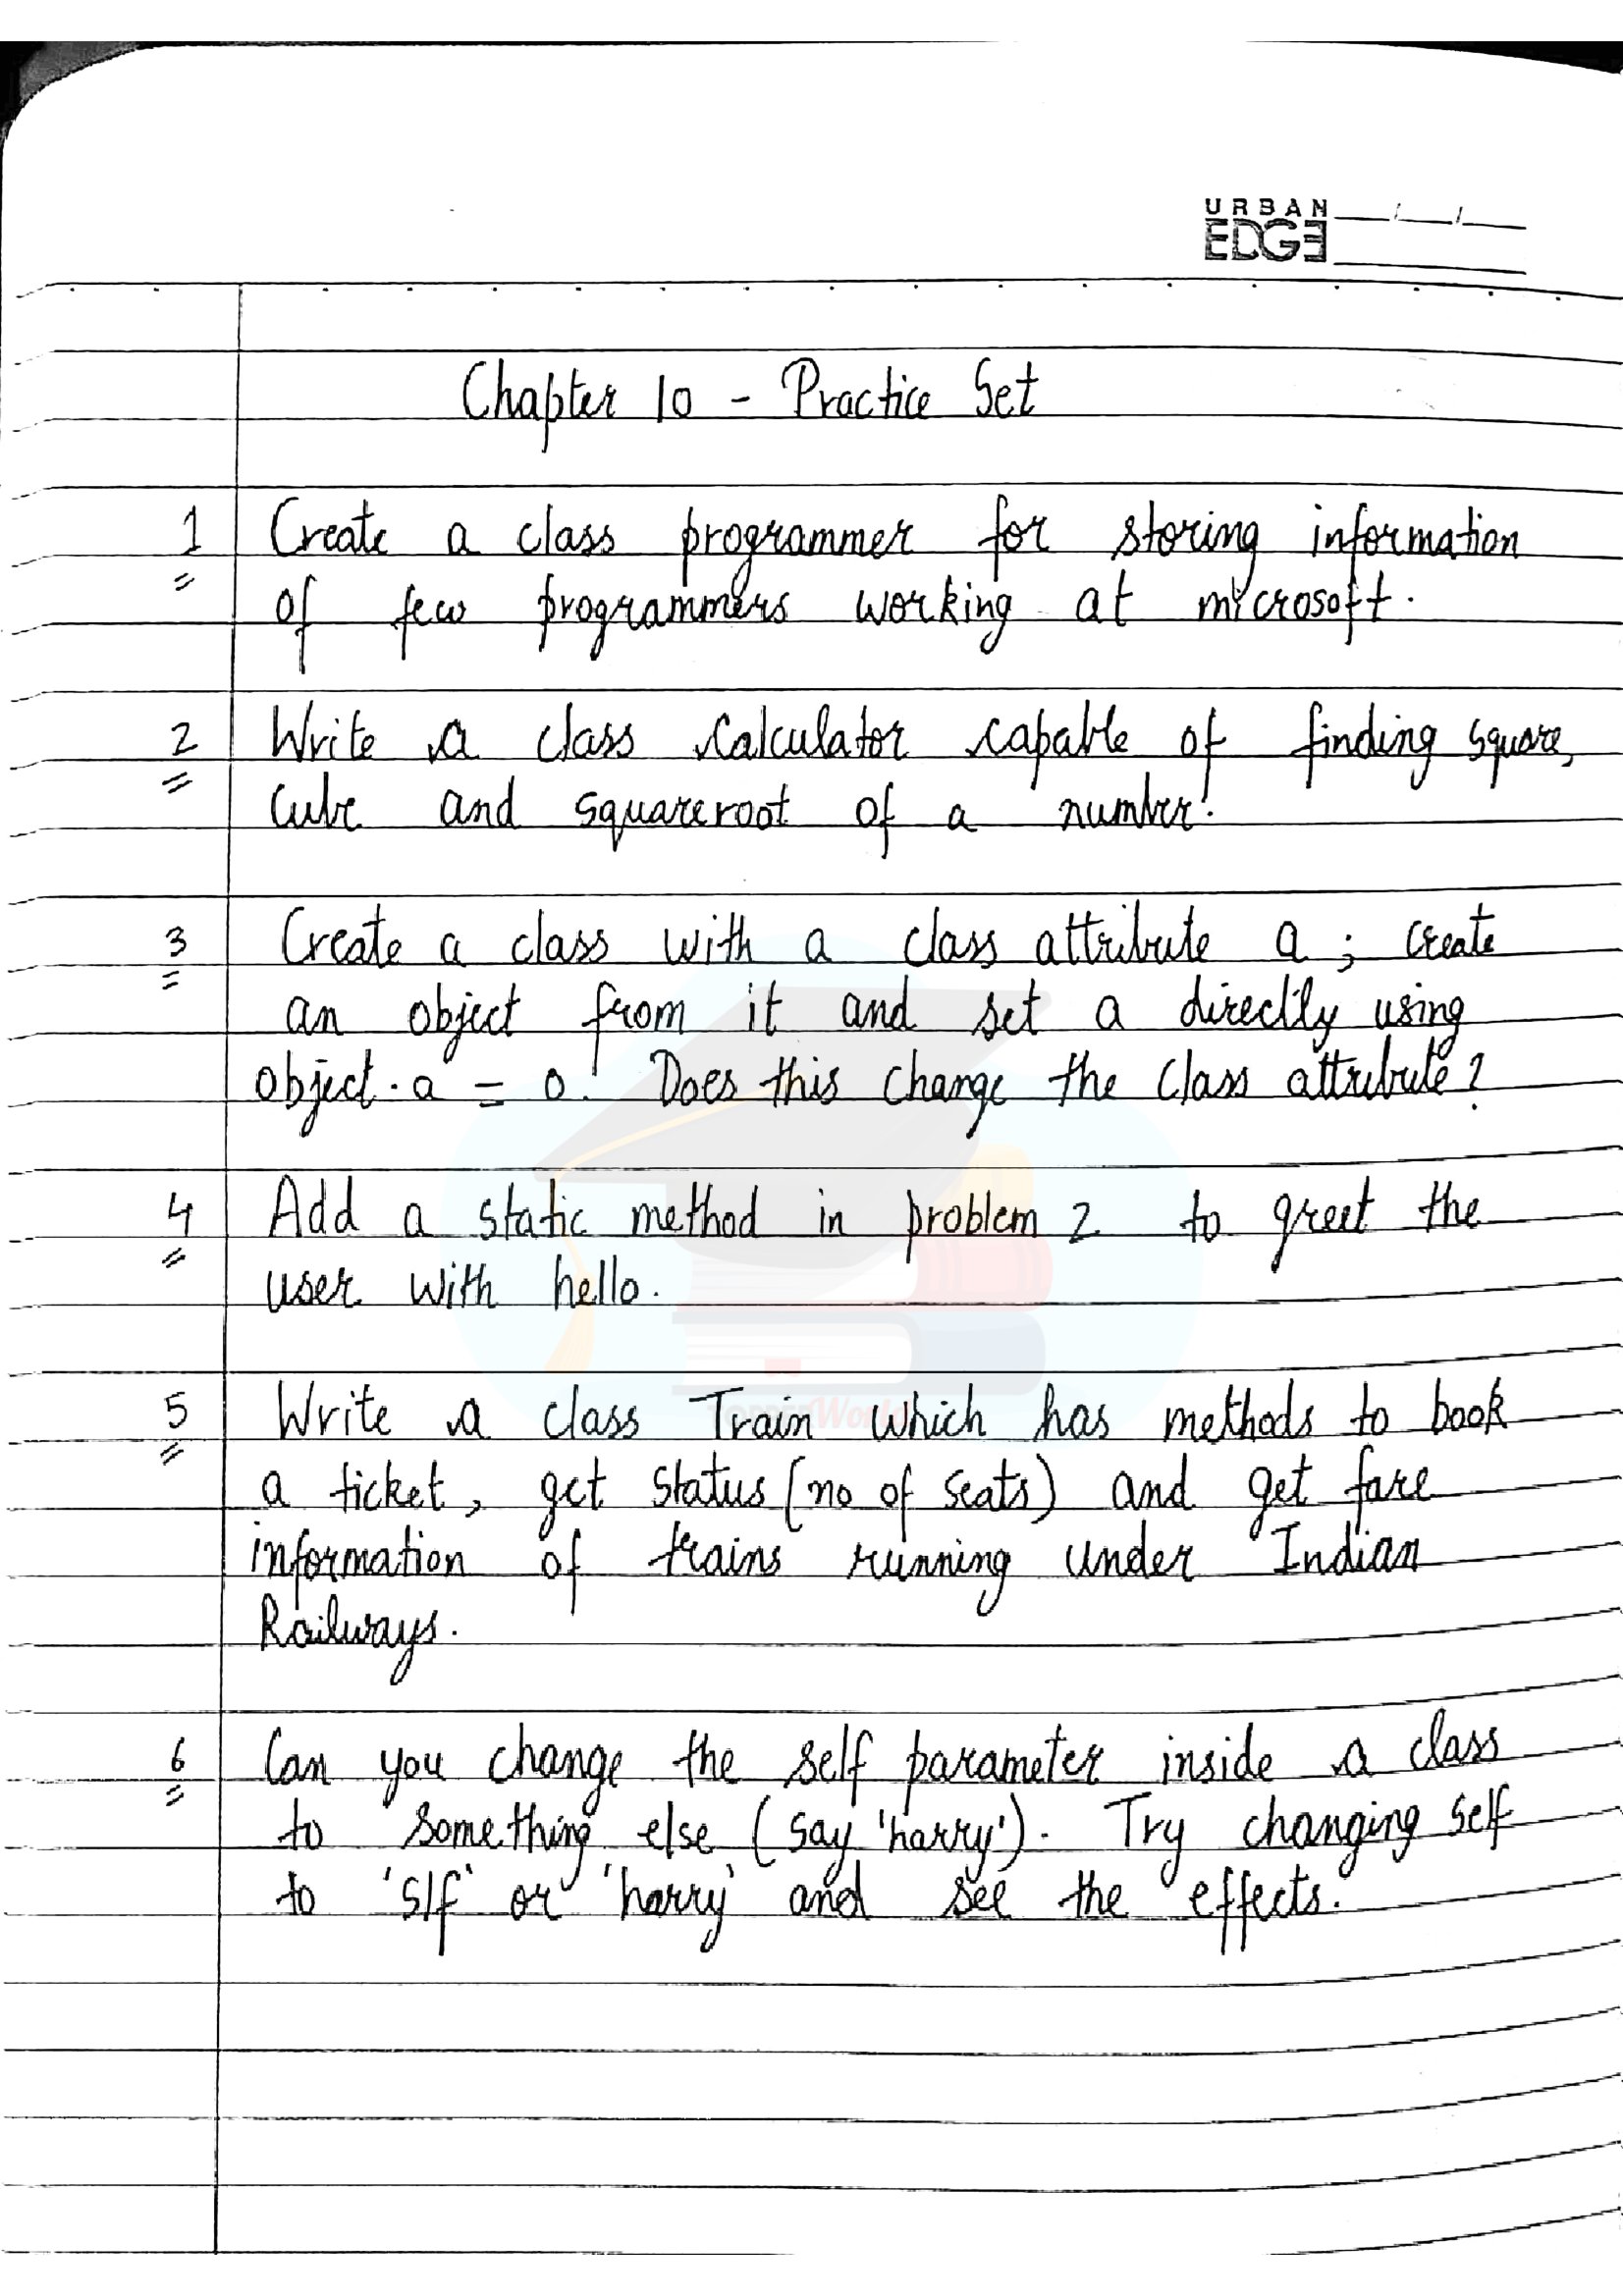 URBAN
EDGE
Chapter 10 - Practice Set
1 Create a class programmer for storing information
of few programmers working at microsoft.
2 Write a class calculator capable of finding square,
cube and squareroot of a number.
3 Create a class with a class attribute a ; create
an object from it and set a directly using
object.a = 0. Does this change the class attribute?
4 Add a static method in problem 2 to greet the
user with hello.
5 Write a class Train which has methods to book
TOPPERWorld
a ticket, get status (no of seats) and get fare
information of trains running under Indian
Railways.
6 Can you change the self parameter inside a class
to something else (say 'harry'). Try changing self
to 'slf' or 'harry' and see the effects.